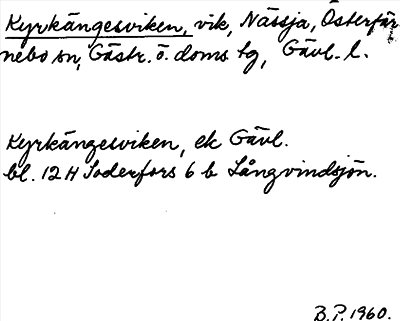 Kyrkängesviken, vik, Nässja, Österfär
nebo sn, Gästr. ö. doms tg, Gävl. l.
Kyrkängesviken, ek Gävl.
bl. 12 H Söderfors 6 b Långvindsjön.
B.P. 1960.